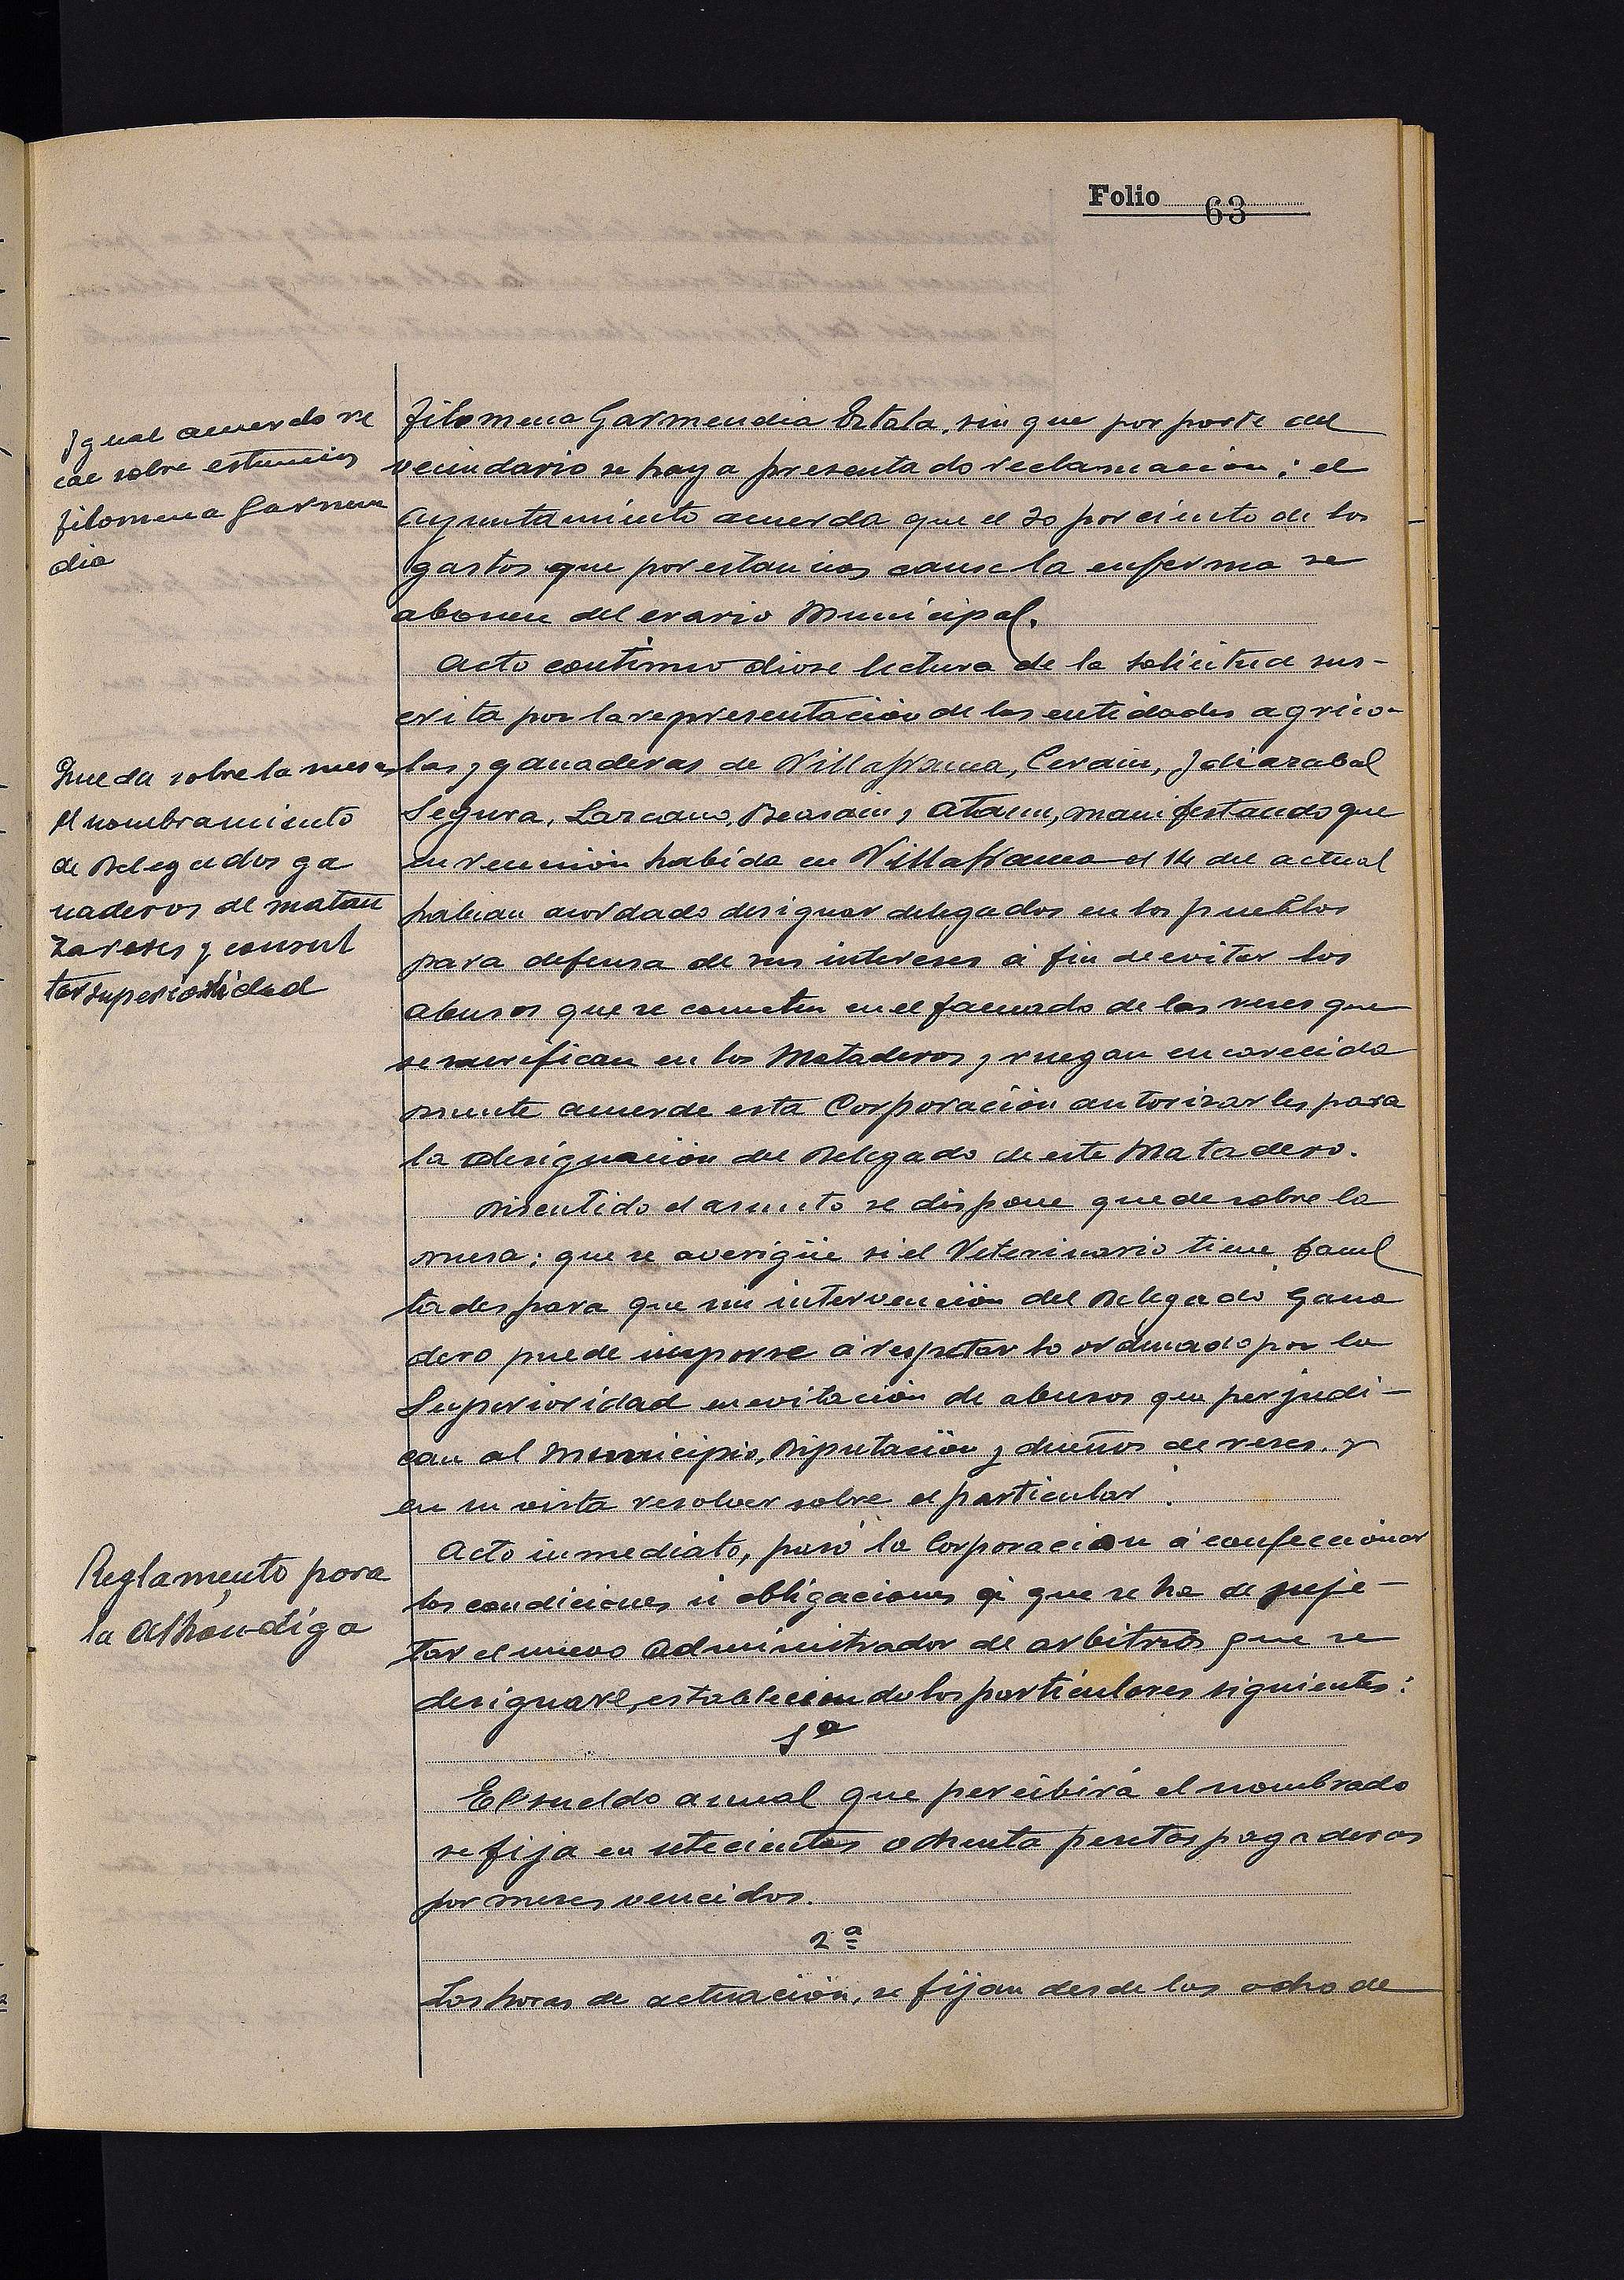 Folio 63
Igual acuerdo re
cae sobre estancias
Filomena Garmen
dia
Filomena Garmendia Estala, sin que por parte del
vecindario se haya presentado reclamación; el
Ayuntamiento acuerda que el 20 por ciento de los
gastos que por estancias cause la enferma se
abonen del erario Municipal.
Acto continuo diose lectura de la solicitud sus-
crita por la representación de las entidades agrico-
Queda sobre la mesa
el nombramiento
de Delegados ga
naderos de matan
za reses y consul
tar superioridad
las y ganaderas de Villafranca, Cerain, Idiazabal
Segura, Lazcano, Beasain y Ataun, manifestando que
en reunión habida en Villafranca el 14 del actual
habian acordado designar delegados en los pueblos
para defensa de sus intereses á fin de evitar los
abusos que se cometen en el faenado de las reses que
se sacrifican en los Mataderos y ruegan encarecida
mente acuerde esta Corporación autorizarles para
la designación del Delegado de este Matadero.
Discutido el asunto se dispone quede sobre la
mesa; que se averigüe si el Veterinario tiene facul
tades para que sin intervención del Delegado Gana
dero puede imponerse á respetar lo ordenado por la
Superioridad en evitación de abusos que perjudi-
can al Municipio, Diputación y dueños de reses, y
en su vista resolver sobre el particular.
Reglamento para
la Alhóndiga
Acto inmediato, pasó la Corporación á confeccionar
las condiciones ú obligaciones á que se ha de suje-
tar el nuevo Administrador de arbitrios que se
designare, estableciendo los particulares siguientes:
1ª
El sueldo anual que percibirá el nombrado
se fija en setecientas ochenta pesetas pagaderas
por meses vencidos.
2ª
Las horas de actuación, se fijan desde las ocho de